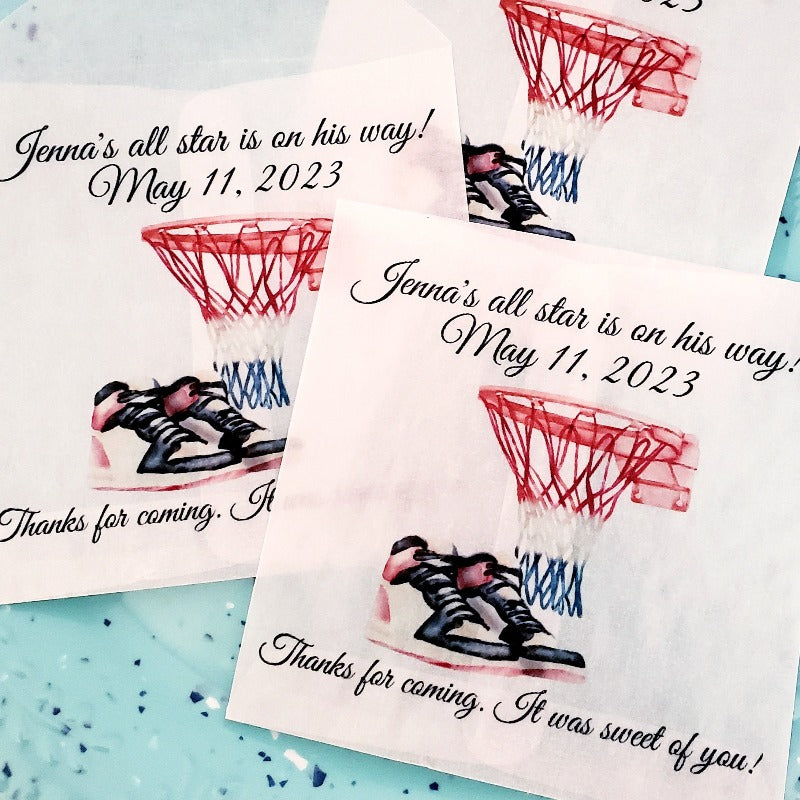 2023
Jenna's all star is on his way!
May 11, 2023
Thanks for coming. It
Jenna's all star is on his way!
May 11, 2023
Thanks for coming. It was sweet of you!